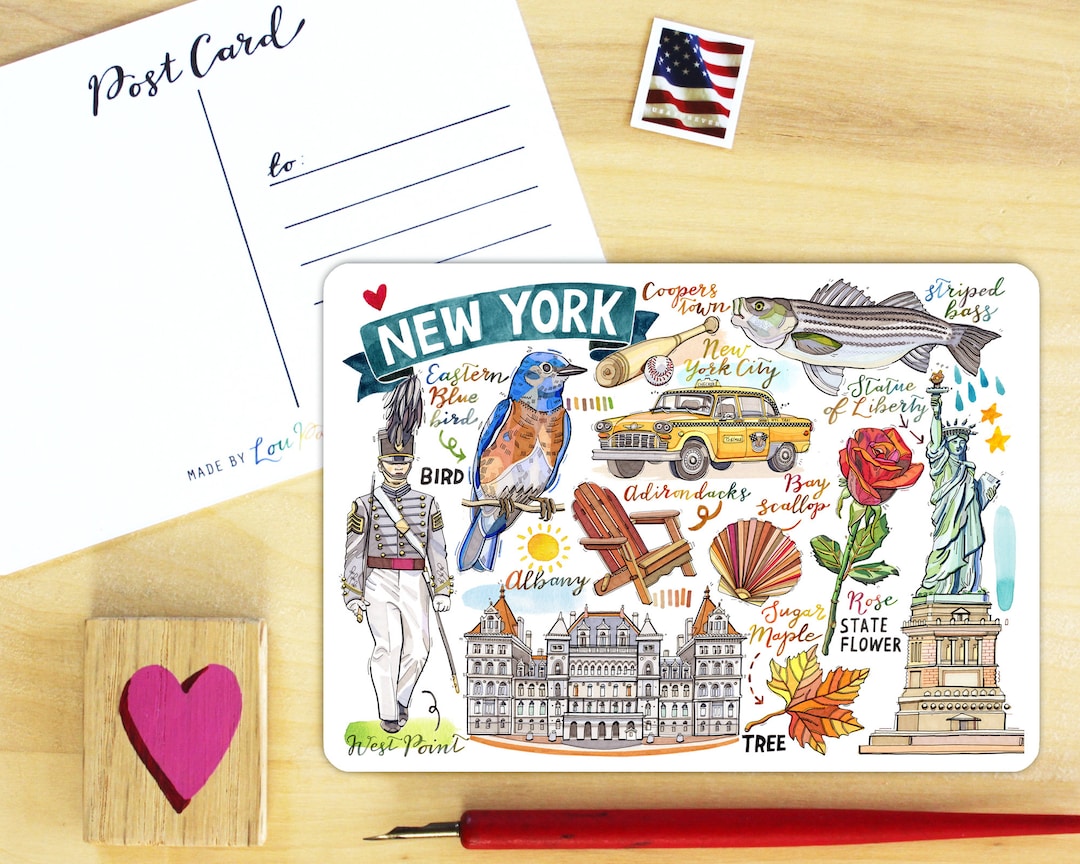 Post Card
to:
MADE BY Lou
NEW YORK
Coopers
town
striped
bass
New
York City
Eastern
Blue
bird,
BIRD
Statue
of Liberty
Adirondacks
Bay
scallop
Albany
Sugar
Maple
Rose
STATE
FLOWER
TREE
West Point